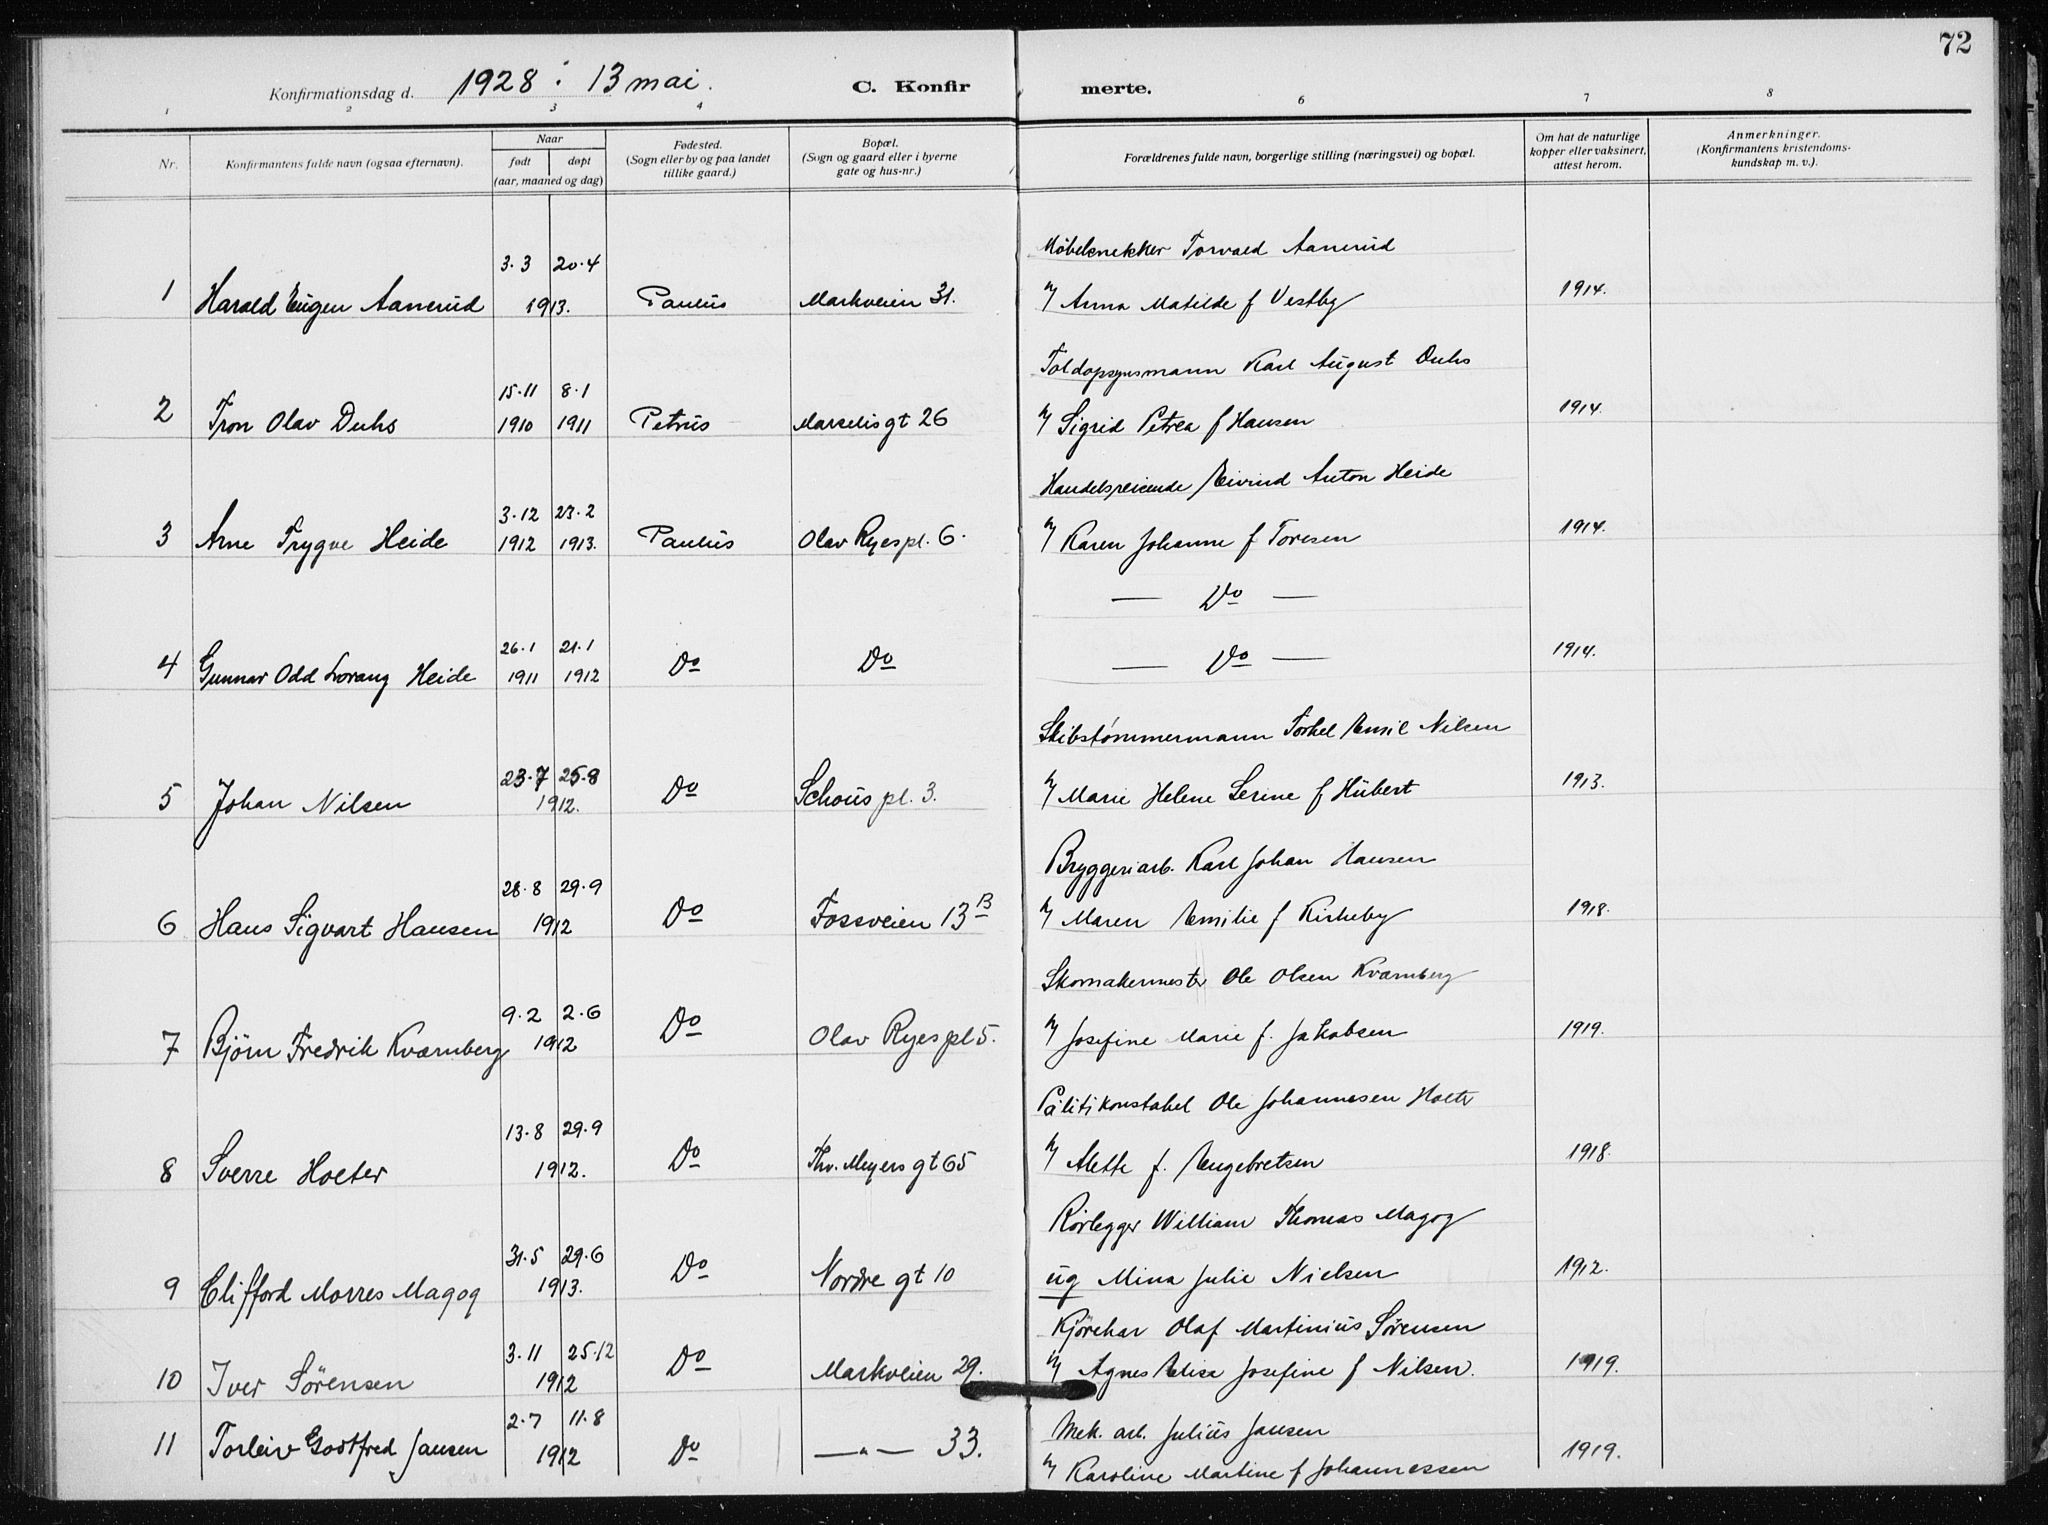 72
Konfirmationsdag d. 1928 : 13 mai. C. Konfirmerte.
1 2 3 4 6 7 8
Nr. Konfirmantens fulde navn (ogsaa efternavn). Naar født døpt (aar, maaned og dag) Fødested. (Sogn eller by og paa landet tillike gaard.) Bopæl. (Sogn og gaard eller i byerne gate og hus-nr.) Forældrenes fulde navn, borgerlige stilling (næringsvei) og bopæl. Om hat de naturlige kopper eller vaksinert, attest herom. Anmerkninger. (Konfirmantens kristendoms-kundskap m. v.).
3.3 20.4 Møbelsnekker Torvald Aanerud
1 Harald Eugen Aanerud 1913. Paulus Markveien 31. h/ Anna Matilde f Vestby 1914.
15.11 8.1 Toldopsynsmann Karl August Duhs
2 Tron Olav Duhs 1910 1911 Petrus Marselisgt 26 h/ Sigrid Petrea f Hansen 1914.
3.12 23.2 Handelsreisende Eivind Anton Heide
3 Arne Trygve Heide 1912 1913. Paulus Olav Ryes pl. 6. h/ Karen Johanne f Toresen 1914.
26.1 21.1 — Do —
4 Gunnar Odd Lorang Heide 1911 1912 Do Do — Do — 1914.
23.7 25.8 Skibstømmermann Torkel Emil Nilsen
5 Johan Nilsen 1912. Do Schous pl. 3. h/ Marie Helene Serine f Hübert 1913.
28.8 29.9 Bryggeriarb. Karl Johan Hansen
6 Hans Sigvart Hansen 1912 Do Fossveien 13 B h/ Maren Emilie f Kirkeby 1918.
9.2 2.6 Skomakermester Ole Olsen Kværnberg
7 Bjørn Fredrik Kværnberg 1912 Do Olav Ryes pl 5. h/ Josefine Marie f. Jakobsen 1919.
13.8 29.9 Politikonstabel Ole Johannesen Holter
8 Sverre Holter 1912. Do Thv. Meyers gt 65 h/ Alette f. Engebretsen 1918.
31.5 29.6 Rørlegger William Thomas Magog
9 Clifford Morres Magog 1913. Do Nordre gt 10 ug Mina Julie Nielsen 1912.
3.11 25.12 Kjørekar Olaf Martinius Sørensen
10 Iver Sørensen 1912 Do Markveien 29. h/ Agnes Elisa Josefine f Nilsen. 1919.
2.7 11.8 Mek. arb. Julius Jansen
11 Torleiv Godtfred Jansen 1912 Do — " — 33. h/ Karoline Martine f Johannessen 1919.